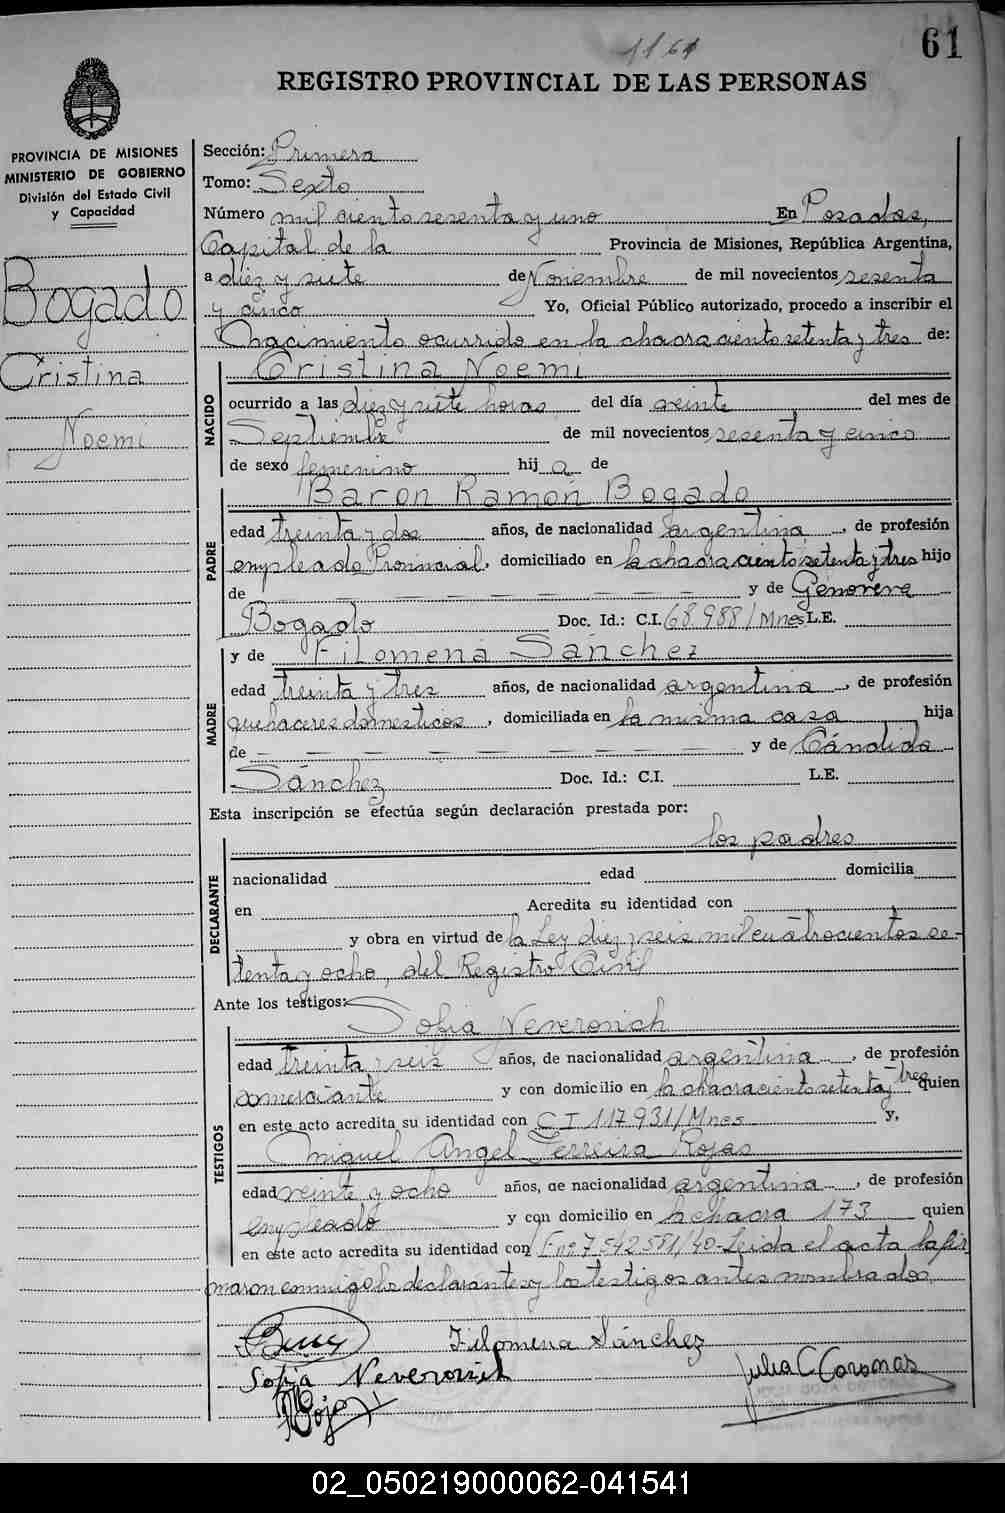 1161
61
REGISTRO PROVINCIAL DE LAS PERSONAS
PROVINCIA DE MISIONES
MINISTERIO DE GOBIERNO
División del Estado Civil
y Capacidad
Bogado
Cristina
Noemi
Sección: Primera
Tomo: Sexto
Número mil ciento sesenta y uno En Posadas,
Capital de la Provincia de Misiones, República Argentina,
a diez y siete de Noviembre de mil novecientos sesenta
y cinco Yo, Oficial Público autorizado, procedo a inscribir el
Nacimiento ocurrido en la chacra ciento setenta y tres de:
NACIDO
Cristina Noemi
ocurrido a las diez y siete horas del día veinte del mes de
Septiembre de mil novecientos sesenta y cinco
de sexo femenino hij a de
PADRE
Baron Ramón Bogado
edad treinta y dos años, de nacionalidad argentina, de profesión
empleado Provincial, domiciliado en la chacra ciento setenta y tres hijo
de — — — — — — — — y de Genoveva
Bogado Doc. Id.: C.I. 68.988/Mnes L.E.
MADRE
y de Filomena Sánchez
edad treinta y tres años, de nacionalidad argentina, de profesión
quehaceres domesticos, domiciliada en la misma casa hija
de — — — — — — — — y de Cándida
Sánchez Doc. Id.: C.I. L.E.
Esta inscripción se efectúa según declaración prestada por:
DECLARANTE
los padres
nacionalidad edad domicilia
en Acredita su identidad con
y obra en virtud de la Ley diez y seis mil cuatrocientos se-
tenta y ocho, del Registro Civil
Ante los testigos:
TESTIGOS
Sofia Neverovich
edad treinta y seis años, de nacionalidad argentina, de profesión
comerciante y con domicilio en la chacra ciento setenta y tres quien
en este acto acredita su identidad con C I 117.931/Mnes y,
Miguel Angel Ferreira Rojas
edad veinte y ocho años, de nacionalidad argentina, de profesión
empleado y con domicilio en la chacra 173 quien
en este acto acredita su identidad con 7.542.581/40- Leida el acta la fir
maron conmigo los declarantes y los testigos antes nombrados.
Filomena Sánchez
Sofia Neverovich
Rojas
Julia C Coronas
02_050219000062-041541